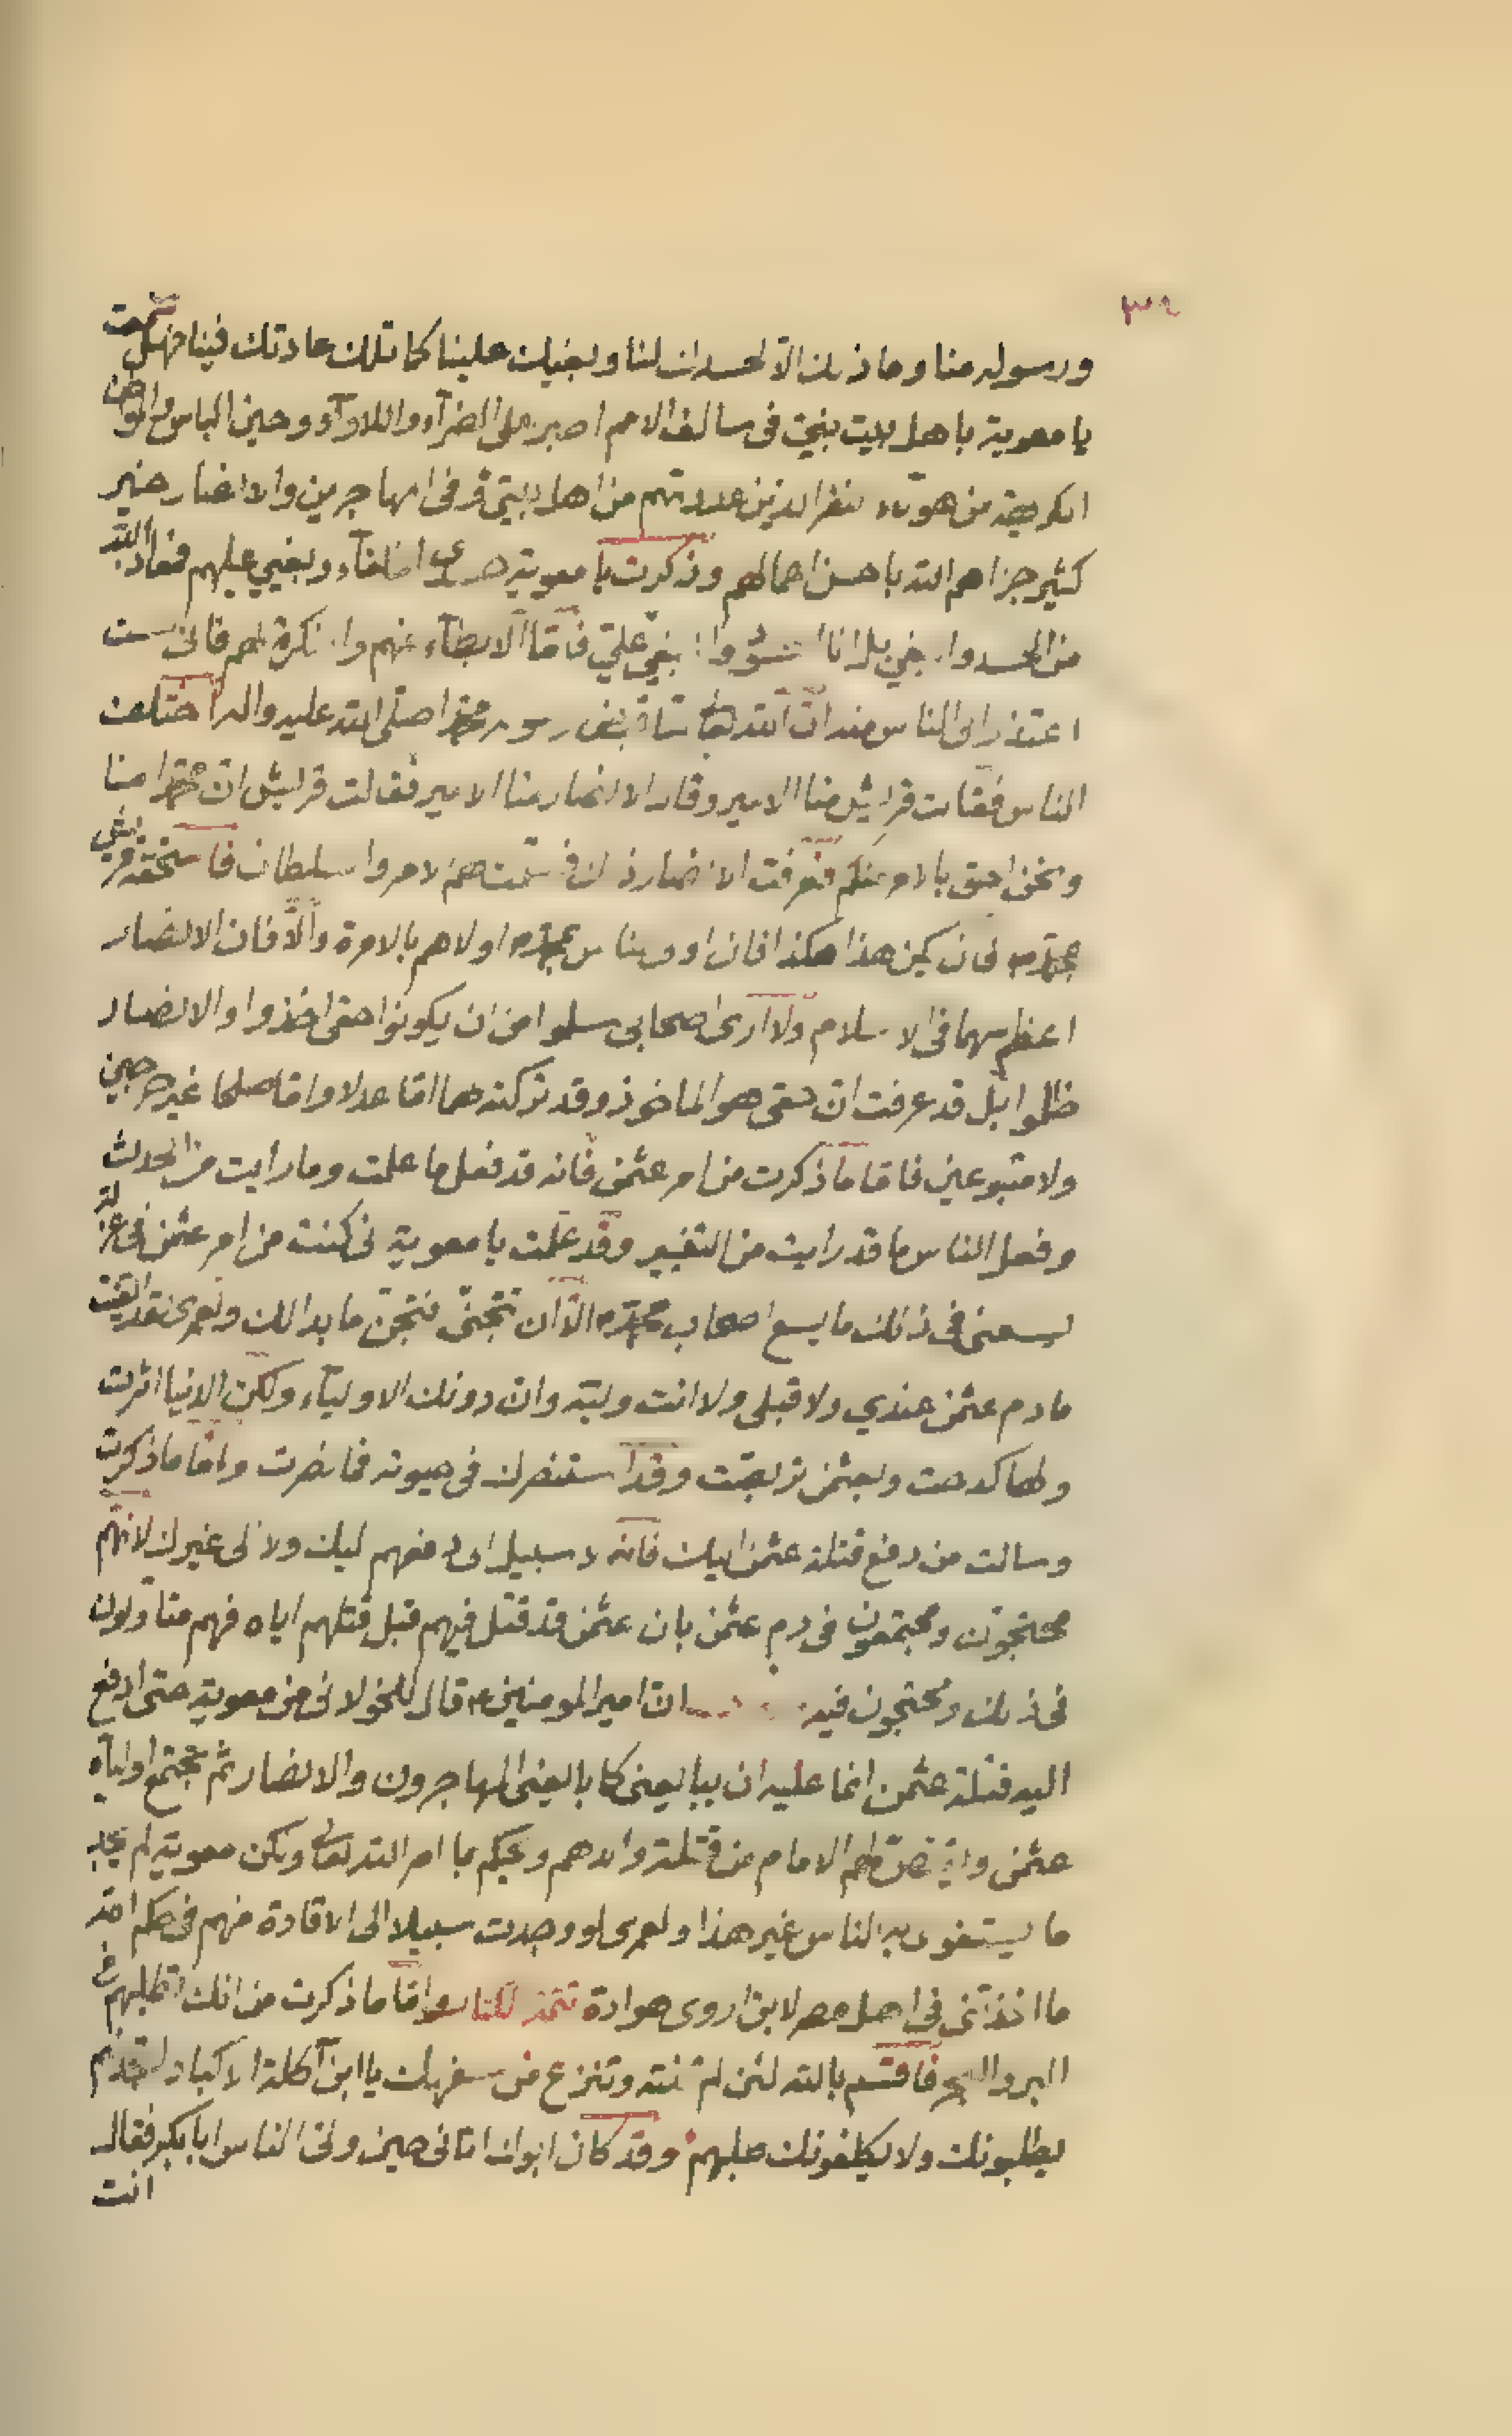 ٣٩
ورسوله منا وما ذلك الا لحسدك لنا وبغيك علينا كما تلك عادتك فينا فهل سمعت
يا معوية باهل بيت نبي في سالف الامم اصبر على الضرآء واللاوآء وحين الباس والمواطن
الكريهة من هؤلاء النفر الذين عددتهم من اهل بيتي وفي المهاجرين والانصار خير
كثير جزاهم الله باحسن اعمالهم وذكرت يا معوية حسدي الخلفآء وبغيي عليهم فمعاذ الله
من الحسد والبغي بل انا المحسود والمبغي علي فاما الابطآء عنهم والنكرة لهم فاني لست
اعتذر الى الناس منه ان الله تعالى لما قبض رسوله محمدا صلى الله عليه واله اختلفت
الناس فقالت قريش منا الامير وقال الانصار منا الامير فقالت قريش ان محمدا منا
ونحن احق بالامر منكم فعرفت الانصار ذلك فسلمت لهم الامر والسلطان فاستحقته قريش
بمحمد فان يكن هذا هكذا فان اولى الناس بمحمد اولاهم بالامرة والا فان الانصار
اعظم سهما في الاسلام ولا ارى اصحابي سلموا من ان يكونوا حقي اخذوا والانصار
ظلموا بل قد عرفت ان حقي هو الماخوذ وقد تركته لهم اما عدلا واما صلحا غير حرجين
ولا متبوعين فاما ما ذكرت من امر عثمن فانه قد فعل ما علمت وما رايت من الحدث
وفعل الناس ما قد رايت من التغيير وقد علمت يا معوية اني كنت من امر عثمن في عزلة
يسعني في ذلك ما يسع اصحاب محمد الا ان تتجنى فتجن ما بدا لك ولعمرى لقد القيت
ما دم عثمن عندي ولا قبلي ولا انت وليه وان دونك الاولياء ولكن الدنيا اثرت
ولها كدحت وبعثمن تربصت وقد استنصرك في حيوته فما نصرت واما ما ذكرت
وسالت من دفع قتلة عثمن اليك فانه لا سبيل الى دفعهم اليك ولا الى غيرك لانهم
محتجون ومجتمعون في دم عثمن بان عثمن قد قتل فيهم قبل قتلهم اياه فهم متاولون
في ذلك ومحتجون فيه ان امير المومنين قال للخولاني من معوية حتى ادفع
اليه قتلة عثمن انما عليه ان يبايعني كما بايعني المهاجرون والانصار ثم يجتمع اوليآء
عثمن واقتص لهم الامام من قتلة والدهم وحكم بما امر الله تعالى ولكن معوية لم يجد
ما يستغوى به الناس غير هذا ولعمرى لو وجدت سبيلا الى الاقادة منهم في حكم الله
ما اخذتني في اهل مصر لابن اروى هوادة واما ما ذكرت من انك تطلبهم في
البر والبحر فاقسم بالله لئن لم تنته وتنزع من سفهك يا ابن آكلة الاكباد لتجدنهم
يطلبونك ولا يكلفونك طلبهم وقد كان ابوك اتاني حين ولى الناس ابا بكر فقال
انت